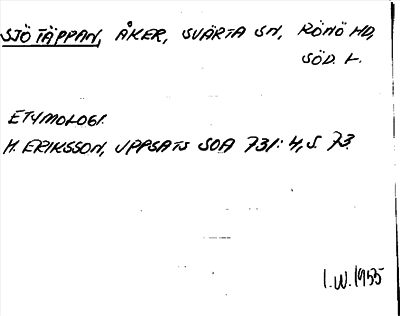 SJÖTÄPPAN, ÅKER, SVÄRTA SN, RÖNÖ HD,
SÖD. L.
ETYMOLOGI.
H. ERIKSSON, UPPSATS SOA 731:4, S 73.
I.W.1955